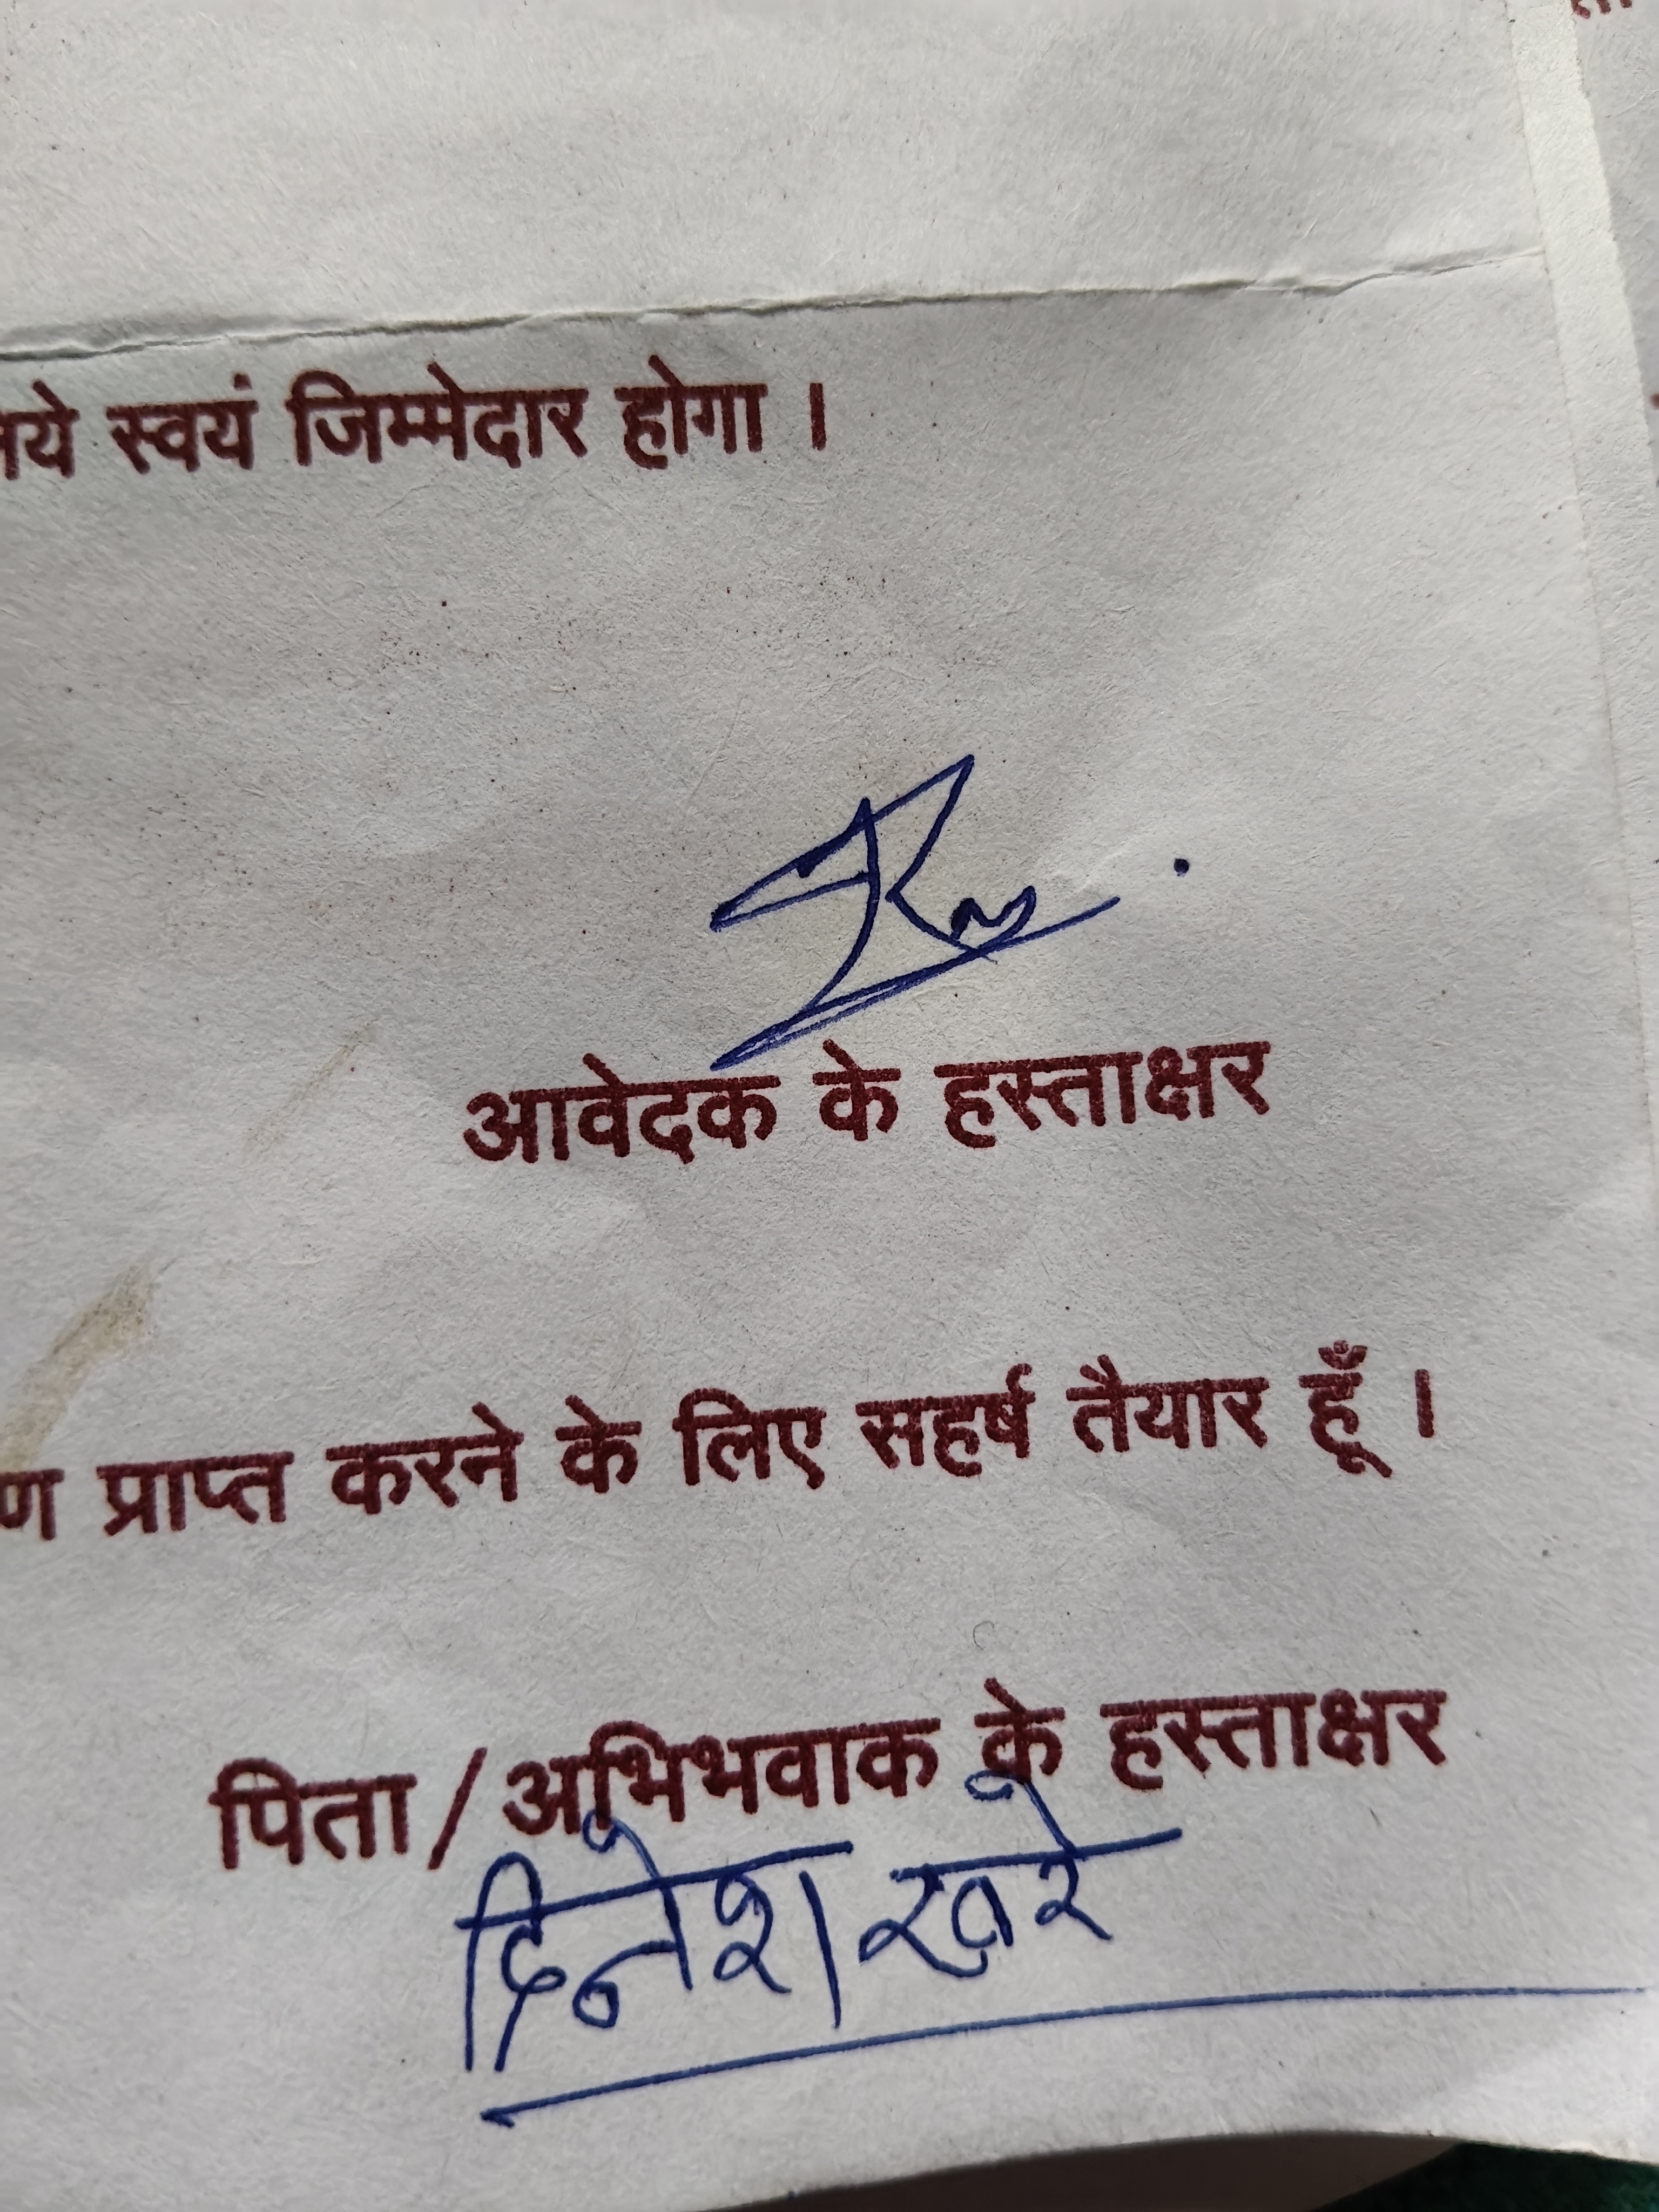 स्वयं जिम्मेदार होगा ।
आवेदक के हस्ताक्षर
प्राप्त करने के लिए सहर्ष तैयार हूँ ।
पिता / अभिभवाक के हस्ताक्षर
दिनेश खरे